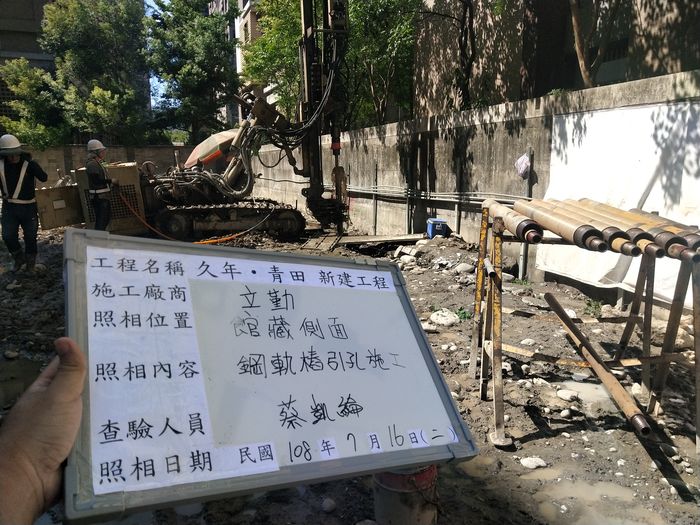 工程名稱 久年·青田 新建工程
施工廠商 立勤
照相位置 館藏側面
照相內容 鋼軌樁引孔施工
查驗人員 蔡凱綸
照相日期 民國 108年7月16日(二)